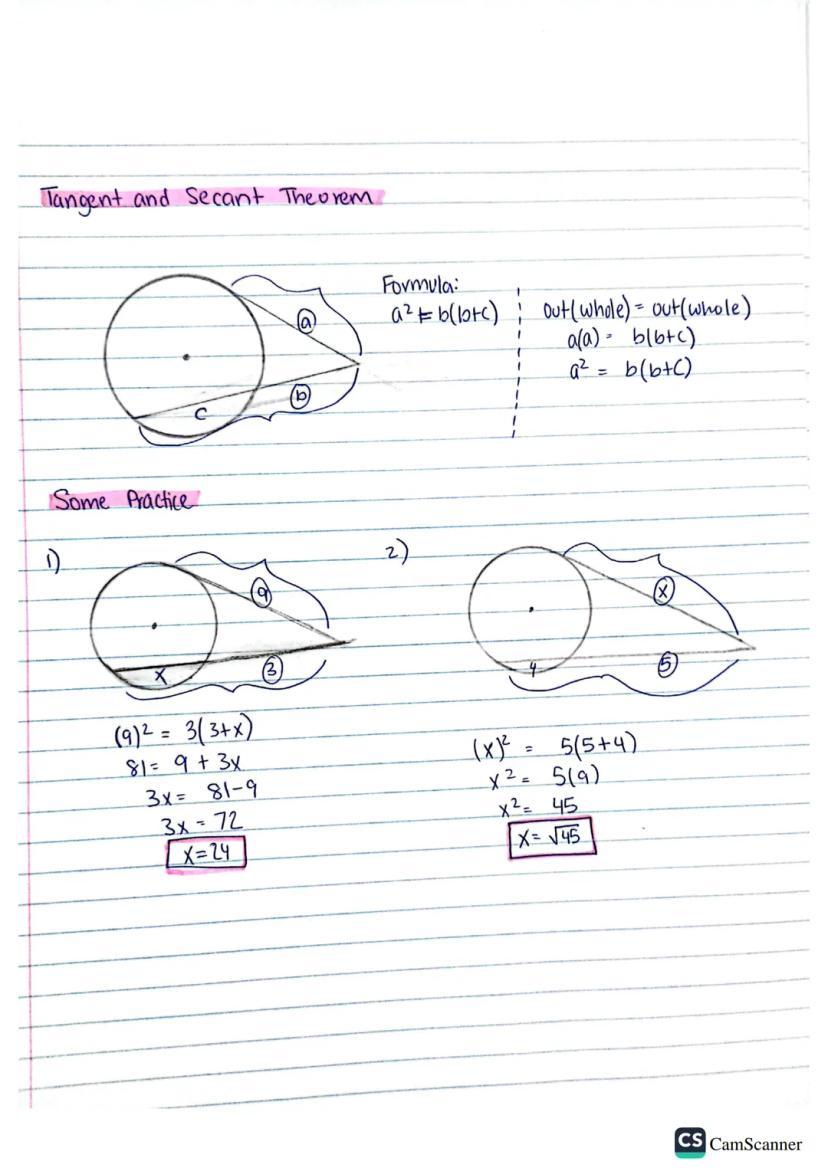 Tangent and Secant Theorem
Formula:
a² = b(b+c)
out(whole) = out(whole)
a(a) = b(b+c)
a² = b(b+c)
a
b
c
Some Practice
1)
9
3
x
(9)² = 3(3+x)
81 = 9 + 3x
3x = 81-9
3x = 72
x=24
2)
x
5
4
(x)² = 5(5+4)
x² = 5(9)
x² = 45
x= √45
CS CamScanner